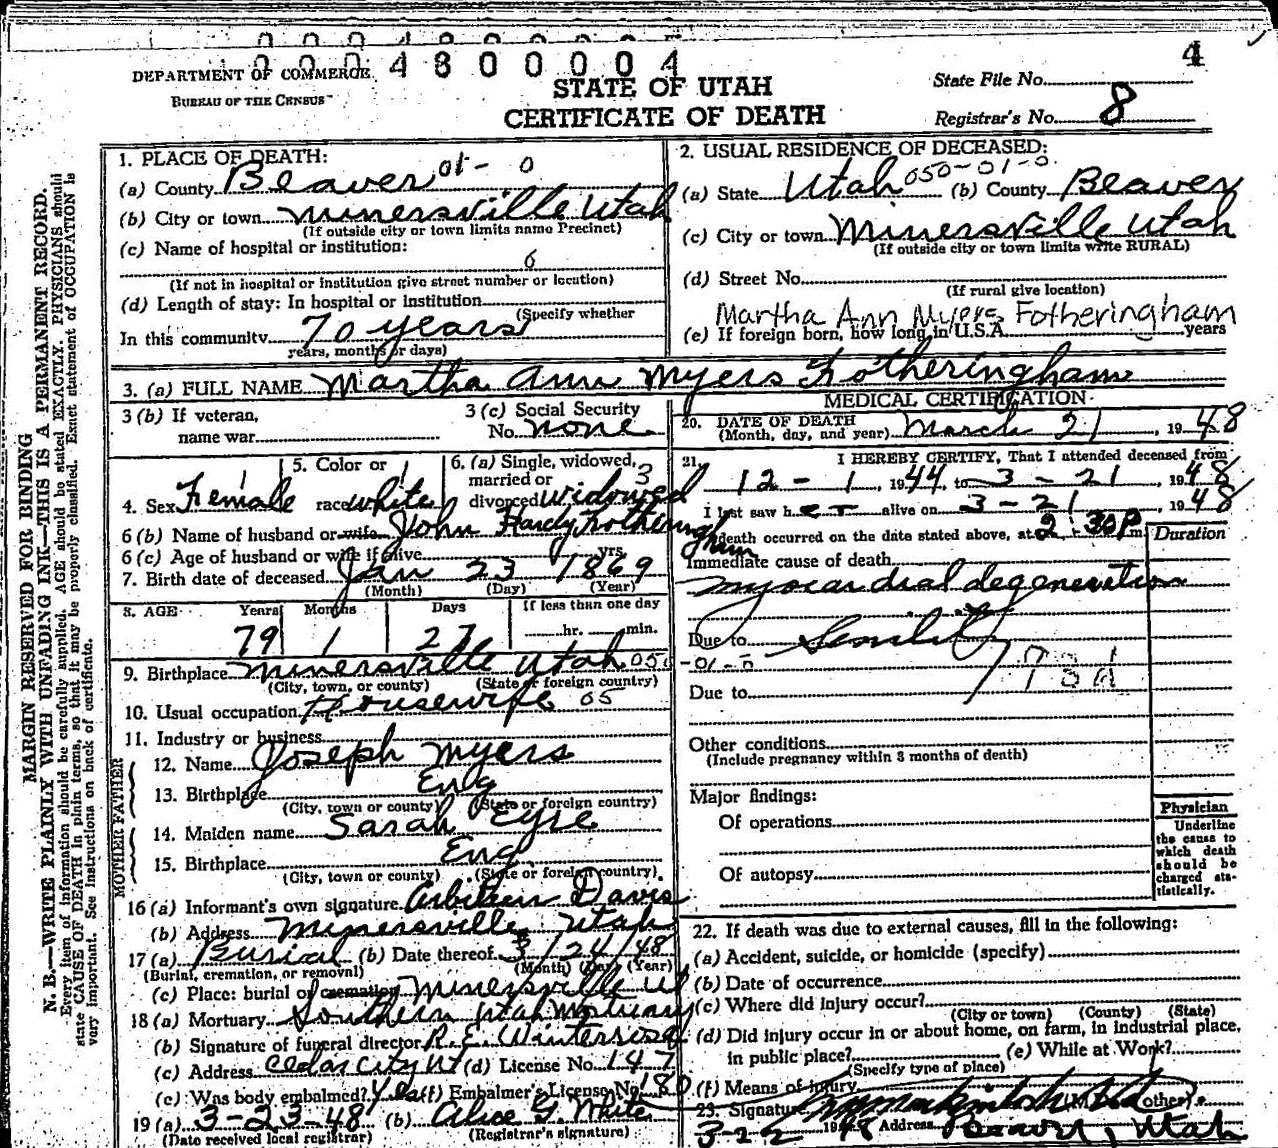 4
DEPARTMENT OF COMMERCE
BUREAU OF THE CENSUS
4 8 0 0 0 0 4
STATE OF UTAH
CERTIFICATE OF DEATH
State File No.
Registrar's No. 8
MARGIN RESERVED FOR BINDING
N. B.—WRITE PLAINLY WITH UNFADING INK—THIS IS A PERMANENT RECORD.
Every item of information should be carefully supplied. AGE should be stated EXACTLY. PHYSICIANS should
state CAUSE OF DEATH in plain terms, so that it may be properly classified. Exact statement of OCCUPATION is
very important. See instructions on back of certificate.
1. PLACE OF DEATH:
(a) County Beaver 01- 0
(b) City or town Minersville Utah
(If outside city or town limits name Precinct)
(c) Name of hospital or institution:
6
(If not in hospital or institution give street number or location)
(d) Length of stay: In hospital or institution
(Specify whether
In this community 70 years
years, months or days)
2. USUAL RESIDENCE OF DECEASED:
(a) State Utah 050-01-0 (b) County Beaver
(c) City or town Minersville Utah
(If outside city or town limits write RURAL)
(d) Street No.
(If rural give location)
Martha Ann Myers Fotheringham
(e) If foreign born, how long in U.S.A. years
3. (a) FULL NAME Martha Ann Myers Fotheringham
3 (b) If veteran,
name war
3 (c) Social Security
No. none
4. Sex Female
5. Color or
race white
6. (a) Single, widowed, 3
married or
divorced widowed
6 (b) Name of husband or wife John Hardy Fotheringham
6 (c) Age of husband or wife if alive yrs.
7. Birth date of deceased Jan 23 1869
(Month) (Day) (Year)
8. AGE Years Months Days If less than one day
79 1 27 hr. min.
9. Birthplace Minersville Utah 050-01-0
(City, town, or county) (State or foreign country)
10. Usual occupation Housewife 05
11. Industry or business
FATHER
12. Name Joseph Myers
13. Birthplace Eng
(City, town or county) (State or foreign country)
MOTHER
14. Maiden name Sarah Eyre
15. Birthplace Eng
(City, town or county) (State or foreign country)
16 (a) Informant's own signature Davis
(b) Address Minersville Utah
17 (a) Burial (b) Date thereof 3/24/48
(Burial, cremation, or removal) (Month) (Day) (Year)
(c) Place: burial or cremation Minersville Ut
18 (a) Mortuary Southern Utah Mortuary
(b) Signature of funeral director R. E.
(c) Address Cedar City Ut (d) License No. 147
(e) Was body embalmed? Yes (f) Embalmer's License No. 180
19 (a) 3-23-48 (b) Alice G. White
(Date received local registrar) (Registrar's signature)
MEDICAL CERTIFICATION
20. DATE OF DEATH
(Month, day, and year) March 21, 1948
21. I HEREBY CERTIFY, That I attended deceased from
12 - 1, 1944, to 3 - 21 1948
I last saw her alive on 3 - 21 1948
death occurred on the date stated above, at 2:30 P m.
Duration
Immediate cause of death
myocardial degeneration
Due to Senility
Due to
Other conditions
(Include pregnancy within 3 months of death)
Major findings:
Of operations
Of autopsy
Physician
Underline
the cause to
which death
should be
charged sta-
tistically.
22. If death was due to external causes, fill in the following:
(a) Accident, suicide, or homicide (specify)
(b) Date of occurrence
(c) Where did injury occur?
(City or town) (County) (State)
(d) Did injury occur in or about home, on farm, in industrial place,
in public place? (e) While at Work?
(Specify type of place)
(f) Means of injury
23. Signature (M.D. or other)
3-22 1948 Address Beaver, Utah